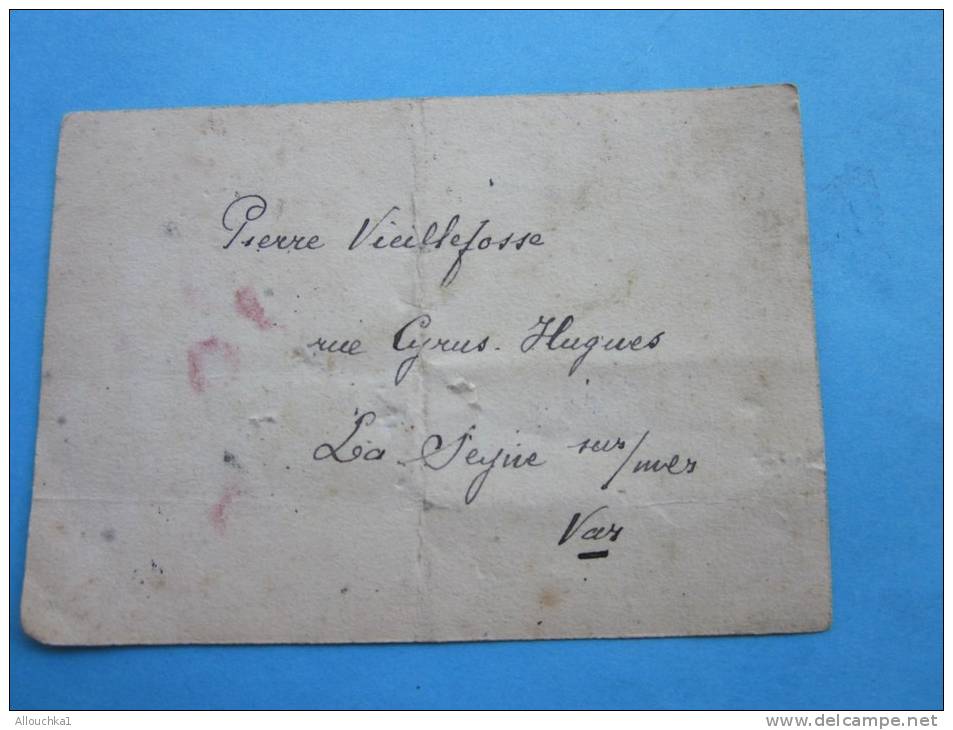 Pierre Vieillefosse
rue Cyrus-Hugues
La Seyne sur/mer
Var
Allouchka1
www.delcampe.net